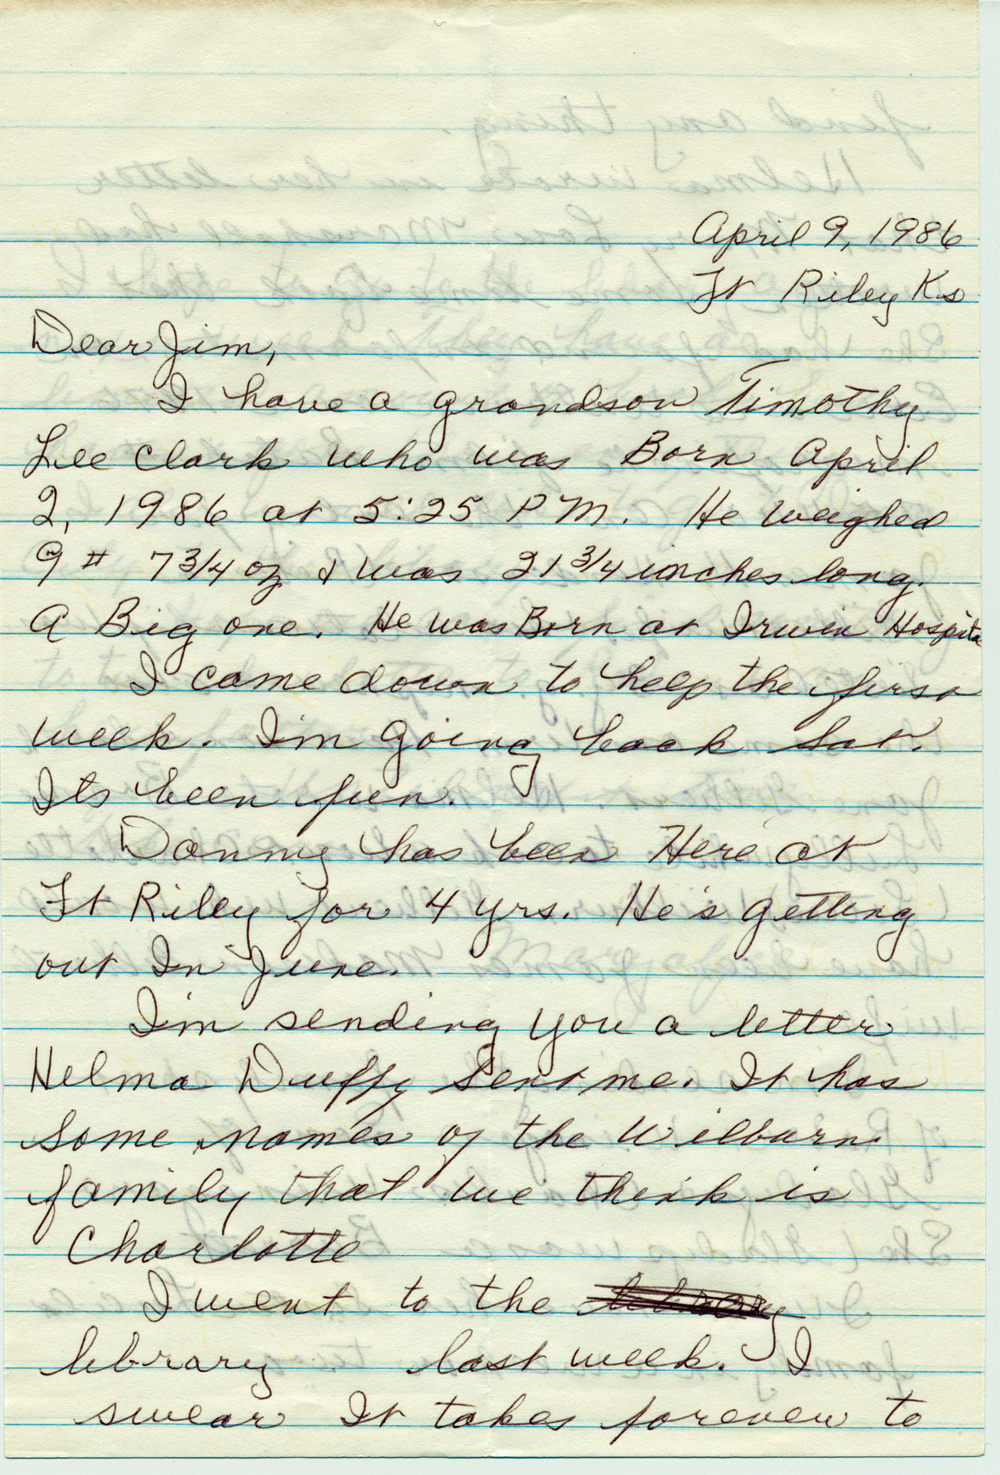 April 9, 1986
Ft Riley Ks
Dear Jim,
I have a grandson Timothy
Lee Clark who was Born April
2, 1986 at 5:25 PM. He weighed
9 # 7 3/4 oz & was 21 3/4 inches long.
A Big one. He was Born at Irwin Hospital
I came down to help the first
week. I'm going back Sat.
Its been fun.
Danny has been Here at
Ft Riley for 4 yrs. He's getting
out In June.
I'm sending you a letter
Helma Duffy sent me. It has
some names of the Wilburn
family that we think is
Charlotte
I went to the library
library last week. I
swear It takes forever to